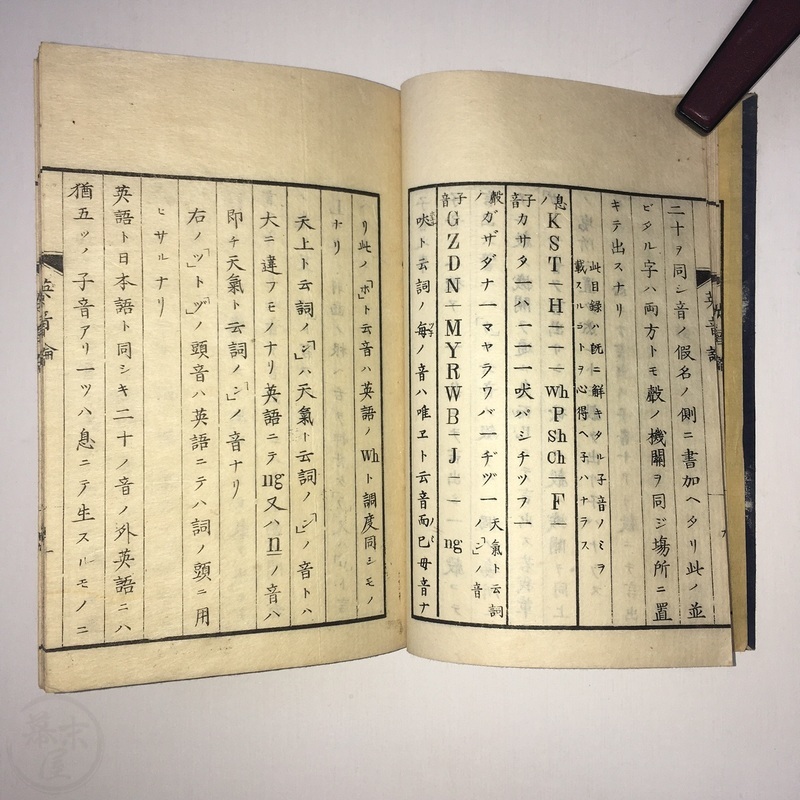 二十ヲ同シ音ノ假名ノ側ニ書加ヘタリ此ノ並
ビタル字ハ両方トモ聲ノ機關ヲ同ジ場所ニ置
キテ出スナリ
此目録ハ既ニ解キタル子音ノミヲ
載スルコトヲ心得ヘ子ハナラス
息ノ子音
K S T ― H ― ― ― Wh P Sh Ch ― F ―
カ サ タ ― ハ ― ― ― 吠 パ シ チ ツ フ ―
聲ノ子音
ガ ザ ダ ナ ― マ ヤ ラ ワ バ ― ヂ ヅ ― 天氣ト云詞ノ「ン」ノ音
G Z D N ― M Y R W B ― J ― ― ng
吠ト云詞ノ毎ノ音ハ唯ヱト云音而已母音ナ
リ此ノ「ホ」ト云音ハ英語ノ Wh ト調度同シモノ
ナリ
天上ト云詞ノ「ン」ハ天氣ト云詞ノ「ン」ノ音トハ
大ニ違フモノナリ英語ニテ ng 又ハ n ノ音ハ
即チ天氣ト云詞ノ「ン」ノ音ナリ
右ノ「ツ」ト「ヅ」ノ頭音ハ英語ニテハ詞ノ頭ニ用
ヒサルナリ
英語ト日本語ト同シキ二十ノ音ノ外英語ニハ
猶五ツノ子音アリ一ツハ息ニテ生スルモノニ
英音論